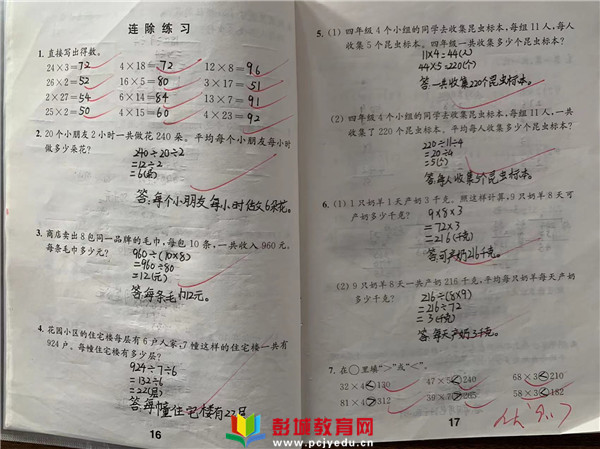 连除练习
1. 直接写出得数。
24×3=72 4×18=72 12×8=96
26×2=52 16×5=80 3×17=51
2×27=54 6×14=84 13×7=91
25×2=50 4×15=60 4×23=92
2. 20个小朋友2小时一共做花240朵。平均每个小朋友每小时
做多少朵花?
240÷20÷2
=12÷2
=6(朵)
答:每个小朋友每小时做6朵花。
3. 商店卖出8包同一品牌的毛巾,每包10条,一共收入960元。
每条毛巾多少元?
960÷(10×8)
=960÷80
=12(元)
答:每条毛巾12元。
4. 花园小区的住宅楼每层有6户人家,7幢这样的住宅楼一共有
924户。每幢住宅楼有多少层?
924÷7÷6
=132÷6
=22(层)
答:每幢住宅楼有22层
16
5. (1) 四年级4个小组的同学去收集昆虫标本,每组11人,每人
收集5个昆虫标本。四年级一共收集多少个昆虫标本?
11×4=44(人)
44×5=220(个)
答:一共收集220个昆虫标本。
(2) 四年级4个小组的同学去收集昆虫标本,每组11人,一共
收集了220个昆虫标本。平均每人收集多少个昆虫标本?
220÷11÷4
=20÷4
=5(个)
答:每人收集5个昆虫标本。
6. (1) 1只奶羊1天产奶3千克。照这样计算,9只奶羊8天可
产奶多少千克?
9×8×3
=72×3
=216(千克)
答:可产奶216千克。
(2) 9只奶羊8天一共产奶216千克,平均每只奶羊每天产奶
多少千克?
216÷(8×9)
=216÷72
=3(千克)
答:每天产奶3千克。
7. 在○里填“>”或“<”。
32×4<130 47×5<240 68×3<210
81×4>312 39×7>265 58×3<182
17
彭城教育网
www.pcjyedu.cn